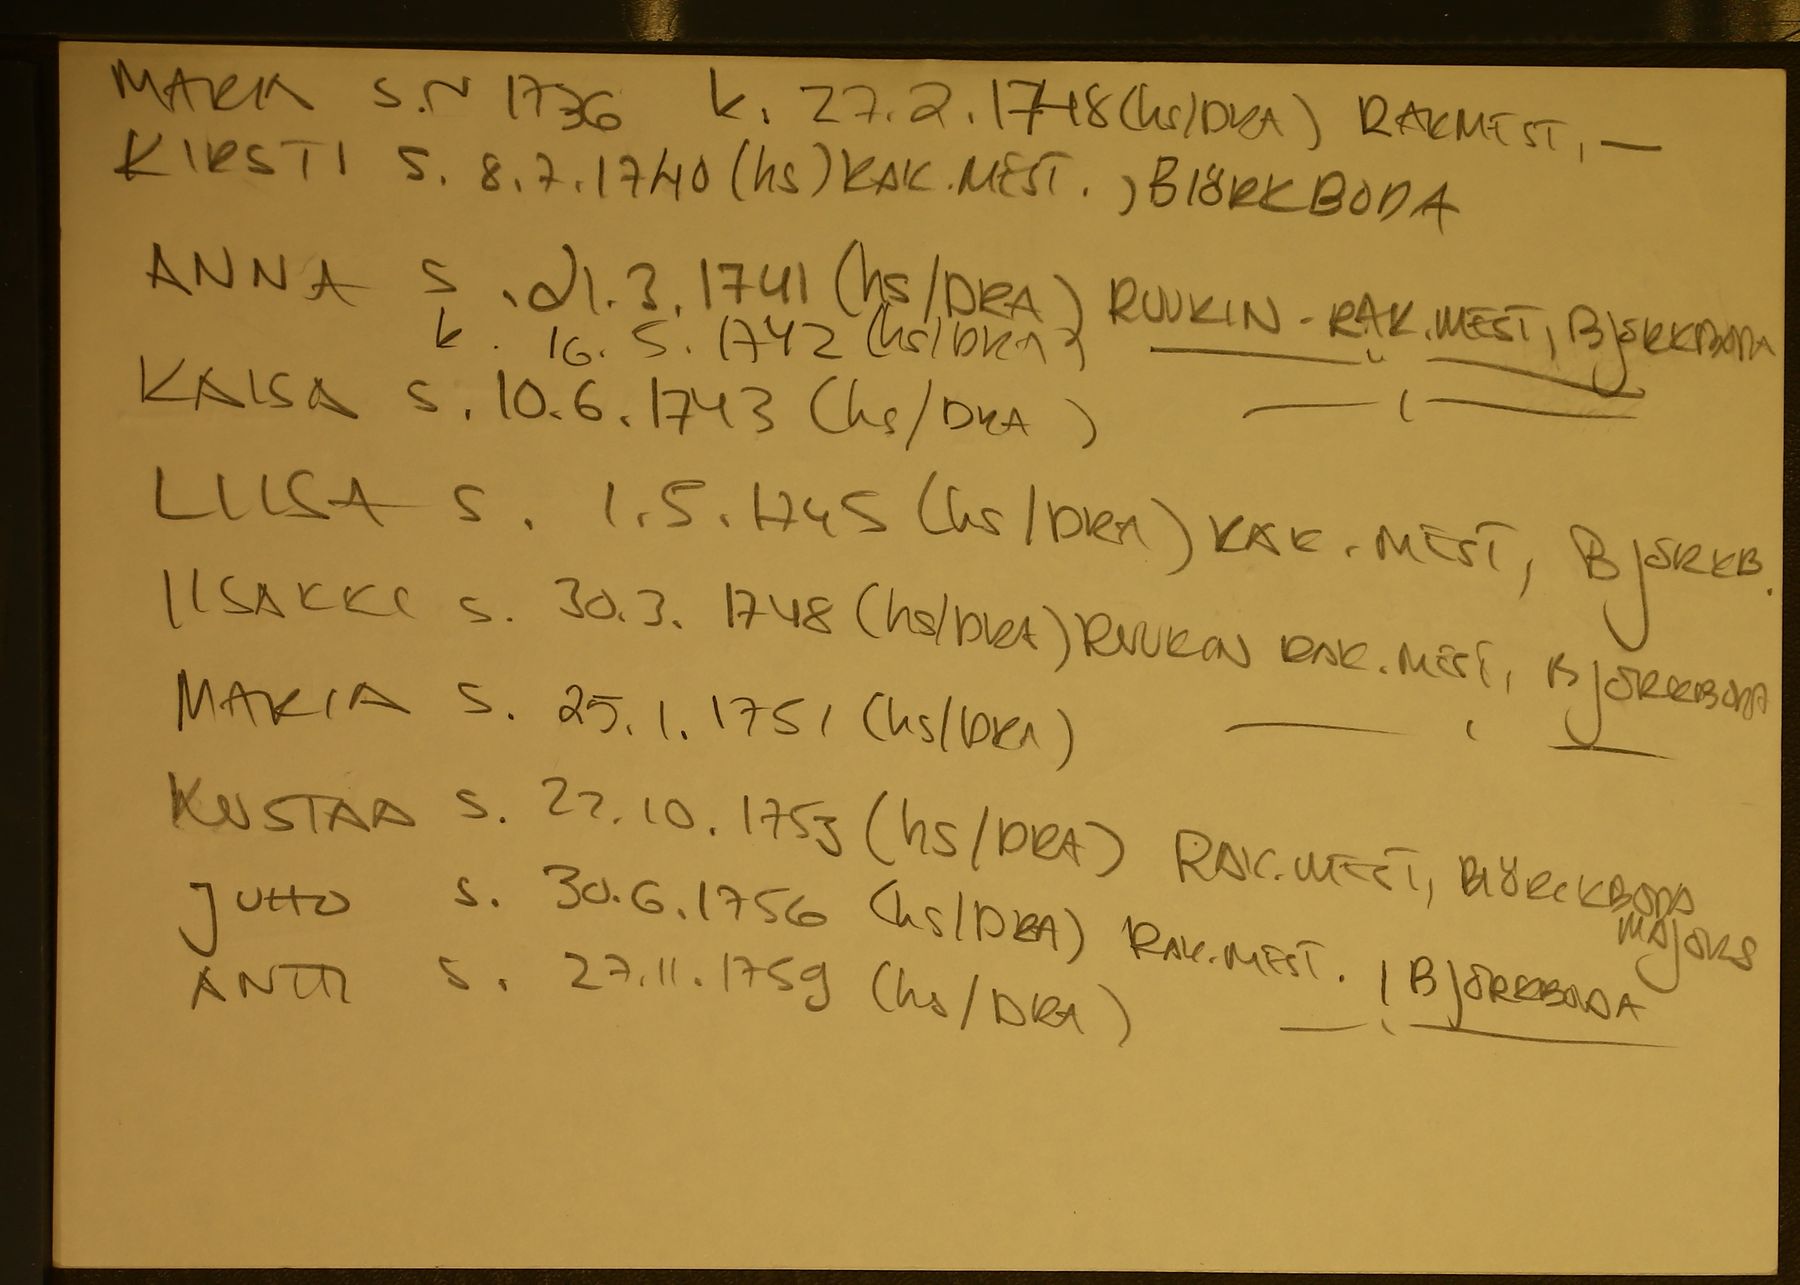 MARIA S.N 1736 k. 27.2.1748 (hs/DRA) RAK.MEST, —
KIRSTI S. 8.7.1740 (hs) RAK.MEST., BIÖRKBODA
ANNA S. 21.3.1741 (hs/DRA) RUUKIN RAK.MEST, BJÖRKBODA
k. 16.5.1742 (hs/DRA) — " —
KAISA S. 10.6.1743 (hs/DRA) — , —
LIISA S. 1.5.1745 (hs/DRA) RAK.MEST, BJÖRKB.
IISAKKI S. 30.3.1748 (hs/DRA) RUUKIN RAK.MEST, BJÖRKBODA
MARIA S. 25.1.1751 (hs/DRA) — , —
KUSTAA S. 22.10.1753 (hs/DRA) RAK.MEST, BIÖRCKBODA
MAJORS
JUHO S. 30.6.1756 (hs/DRA) RAK.MEST., BJÖRKBODA
ANTTI S. 27.11.1759 (hs/DRA) — , —